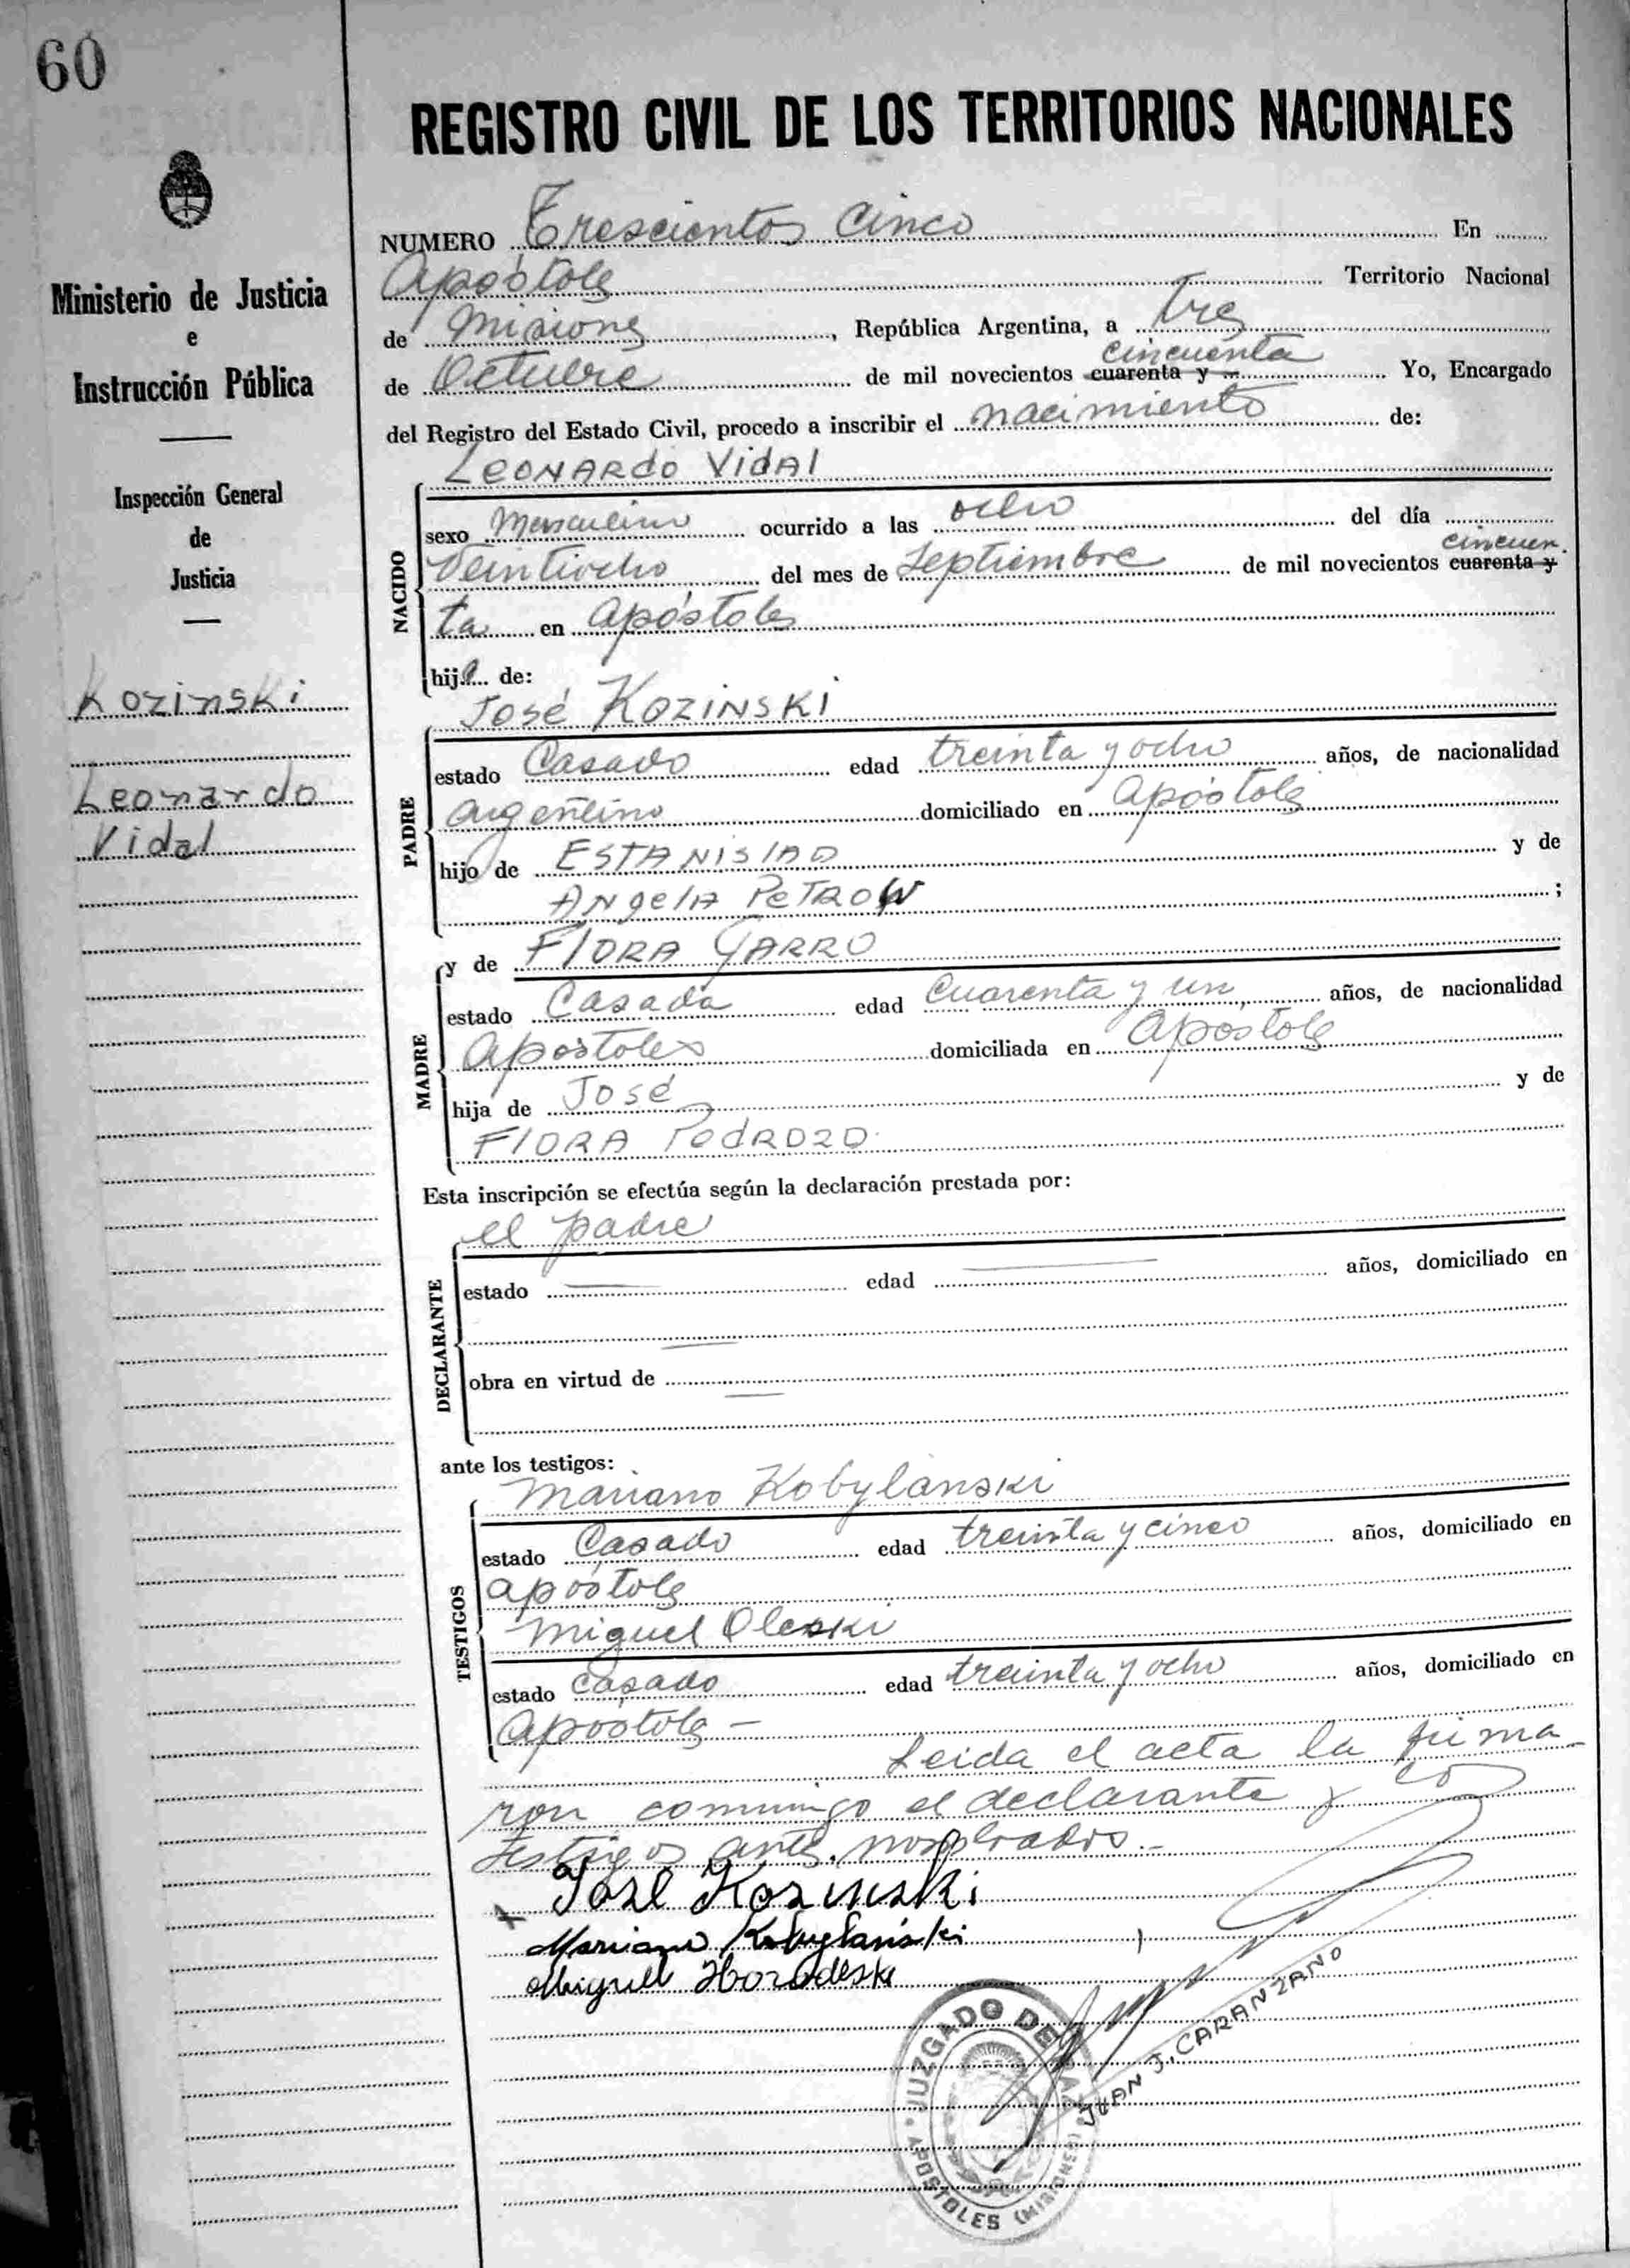 60
REGISTRO CIVIL DE LOS TERRITORIOS NACIONALES
Ministerio de Justicia
e
Instrucción Pública
Inspección General
de
Justicia
Kozinski
Leonardo
Vidal
NUMERO Trescientos Cinco En
Apóstoles Territorio Nacional
de Misiones, República Argentina, a tres
cincuenta
de Octubre de mil novecientos cuarenta y Yo, Encargado
del Registro del Estado Civil, procedo a inscribir el nacimiento de:
LEONARDO VIDAL
NACIDO
sexo Masculino ocurrido a las ocho del día
cincuen
veintiocho del mes de Septiembre de mil novecientos cuarenta y
ta en Apóstoles
hijo de:
José KOZINSKI
PADRE
estado Casado edad treinta y ocho años, de nacionalidad
argentino domiciliado en Apóstoles
hijo de ESTANISLAO y de
ANGELA PETROW ;
y de FLORA GARRO
MADRE
estado Casada edad Cuarenta y un años, de nacionalidad
Apostoles domiciliada en Apóstoles
hija de José y de
FLORA PEDROZO.
Esta inscripción se efectúa según la declaración prestada por:
el padre
DECLARANTE
estado edad años, domiciliado en
obra en virtud de
ante los testigos:
Mariano Kobylanski
TESTIGOS
estado Casado edad treinta y cinco años, domiciliado en
apóstoles
Miguel Oleski
estado casado edad treinta y ocho años, domiciliado en
Apostoles —
Leida el acta la firma-
ron conmigo el declarante y los
testigos antes nombrados.-
José Kozinski
Mariano Kobylański
Miguel Horodeski
JUZGADO DE PAZ
APOSTOLES (MISIONES)
JUAN J. CARANZANO